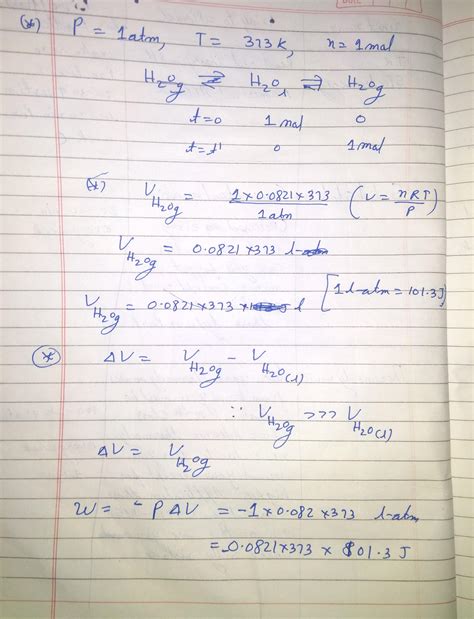 (*) P = 1atm, T = 373K, n = 1 mol
H₂Og ⇌ H₂Ol ⇌ H₂Og
t=0 1 mol 0
t=t' 0 1mol
(*) V_H₂Og = 1×0.0821×373 / 1atm (V = nRT/P)
V_H₂Og = 0.0821×373 l-atm
V_H₂Og = 0.0821×373 l [1 l-atm = 101.3J]
(*) ΔV = V_H₂Og − V_H₂O(l)
∵ V_H₂Og >>> V_H₂O(l)
ΔV = V_H₂Og
W = -PΔV = -1×0.082×373 l-atm
= -0.0821×373 × 101.3 J